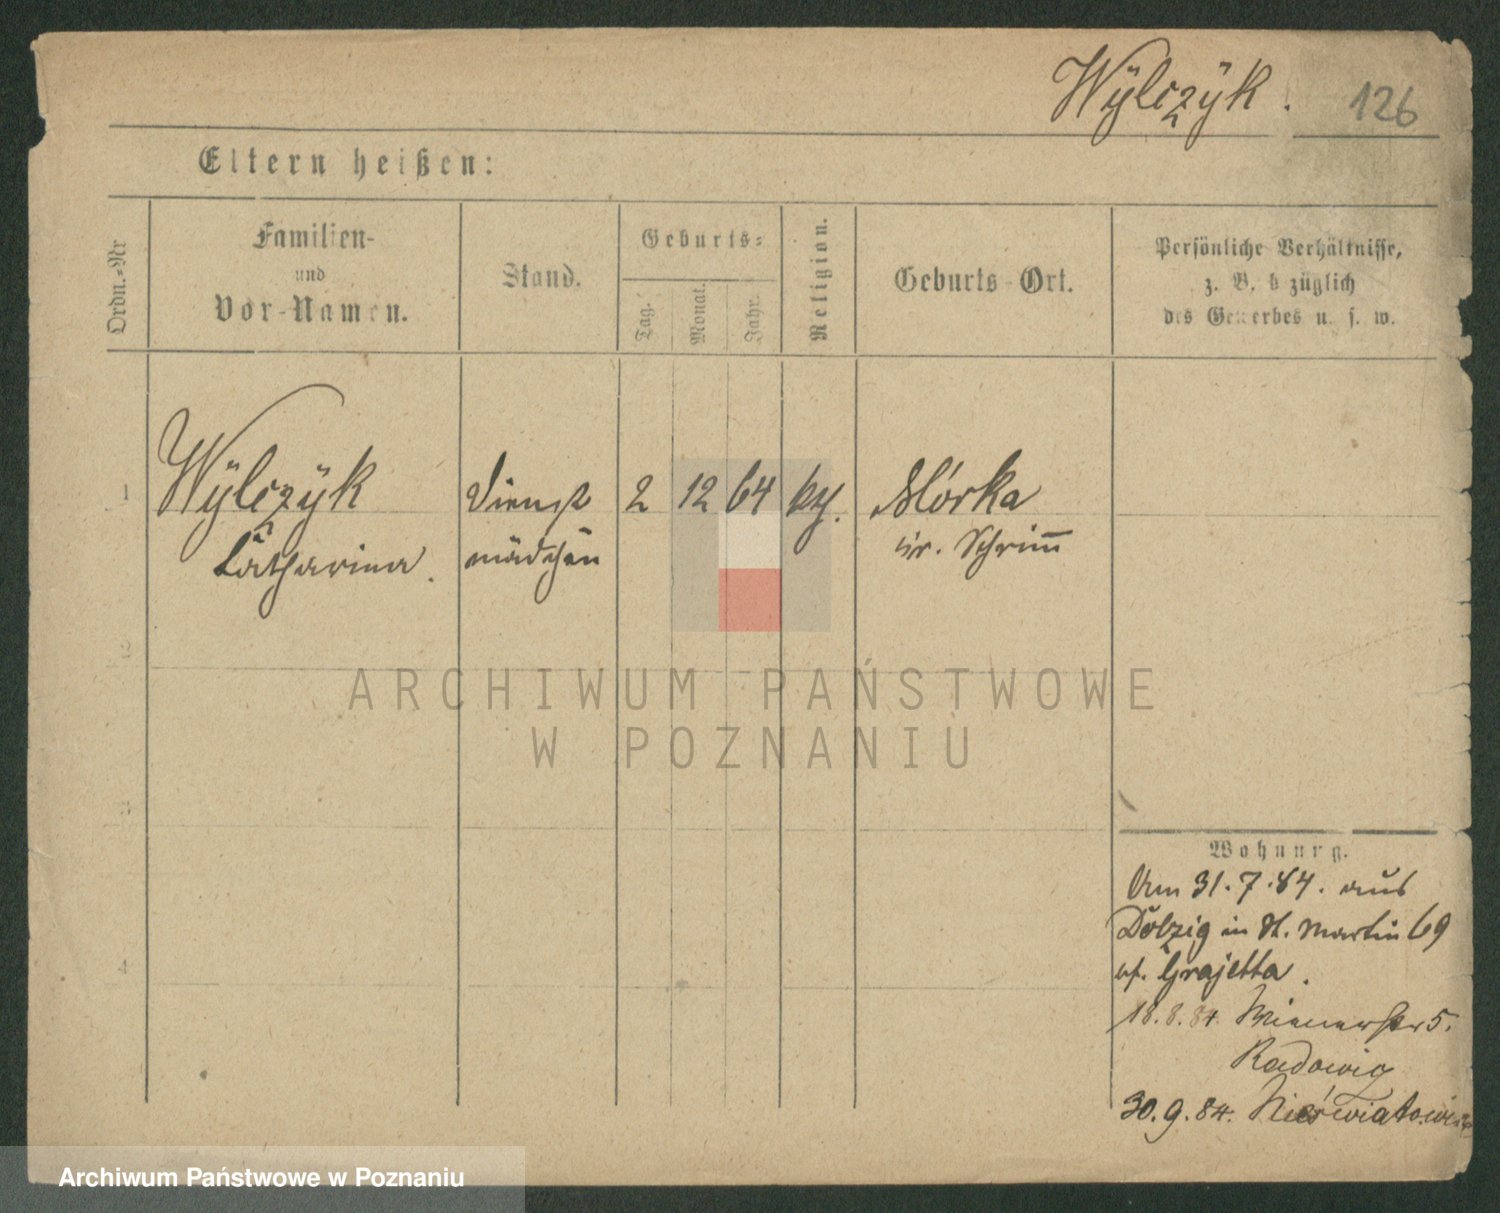 Wÿlczÿk. 126
Eltern heißen:
Ordn.-Nr
Familien-
und
Vor-Namen.
Stand.
Geburts-
Tag.
Monat.
Jahr.
Religion.
Geburts-Ort.
Persönliche Verhältnisse,
z. B. bezüglich
des Gewerbes u. s. w.
1 Wÿlczÿk Dienst 2 12 64 Mórka
Catharina. mädchen Kr. Schrim̅
2
3
4
Wohnung.
Am 31.7.84. aus
Dolzig in St. Martin 69
bf. Grajetta.
18.8.84 Wienerstr 5.
Radowig
30.9.84.
ARCHIWUM PAŃSTWOWE
W POZNANIU
Archiwum Państwowe w Poznaniu